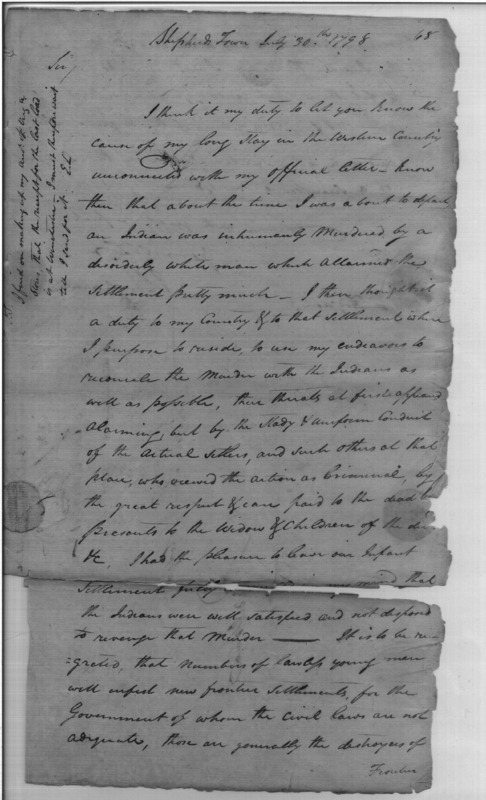 Shepherds Town July 30th. 1798
68
Sir,
I think it my duty to let you know the
cause of my long stay in the Western Country
unconnected with my official letter – Know
then that about the time I was about to depart
an Indian was inhumanly Murdered by a
disorderly white man which allarmed the
Settlement pretty much – I then thought it
a duty to my Country & to that Settlement where
I purpose to reside, to use my endeavors to
reconcile the Murder with the Indians as
well as possible, their threats at first appeard
alarming, but by the Stady & uniform Conduct
of the actual Setlers, and such others at that
place, who viewed the action as Criminal, by
the great respect & care paid to the dead by
presents to the Widow & Children of the
&c, I had the pleasure to leave our Infant
Settlement that
the Indians were well Satisfied and not disposd
to revenge that Murder — It is to be re-
=greted, that numbers of lawless young men
will infest new frontier Settlements, for the
Government of whom the Civil laws are not
adequate, those are generally the destroyers of
Frontier
I find on making up my
Stores, that the receipt for the last
is at Winchester – I must therefore wait
till I send for it. EL